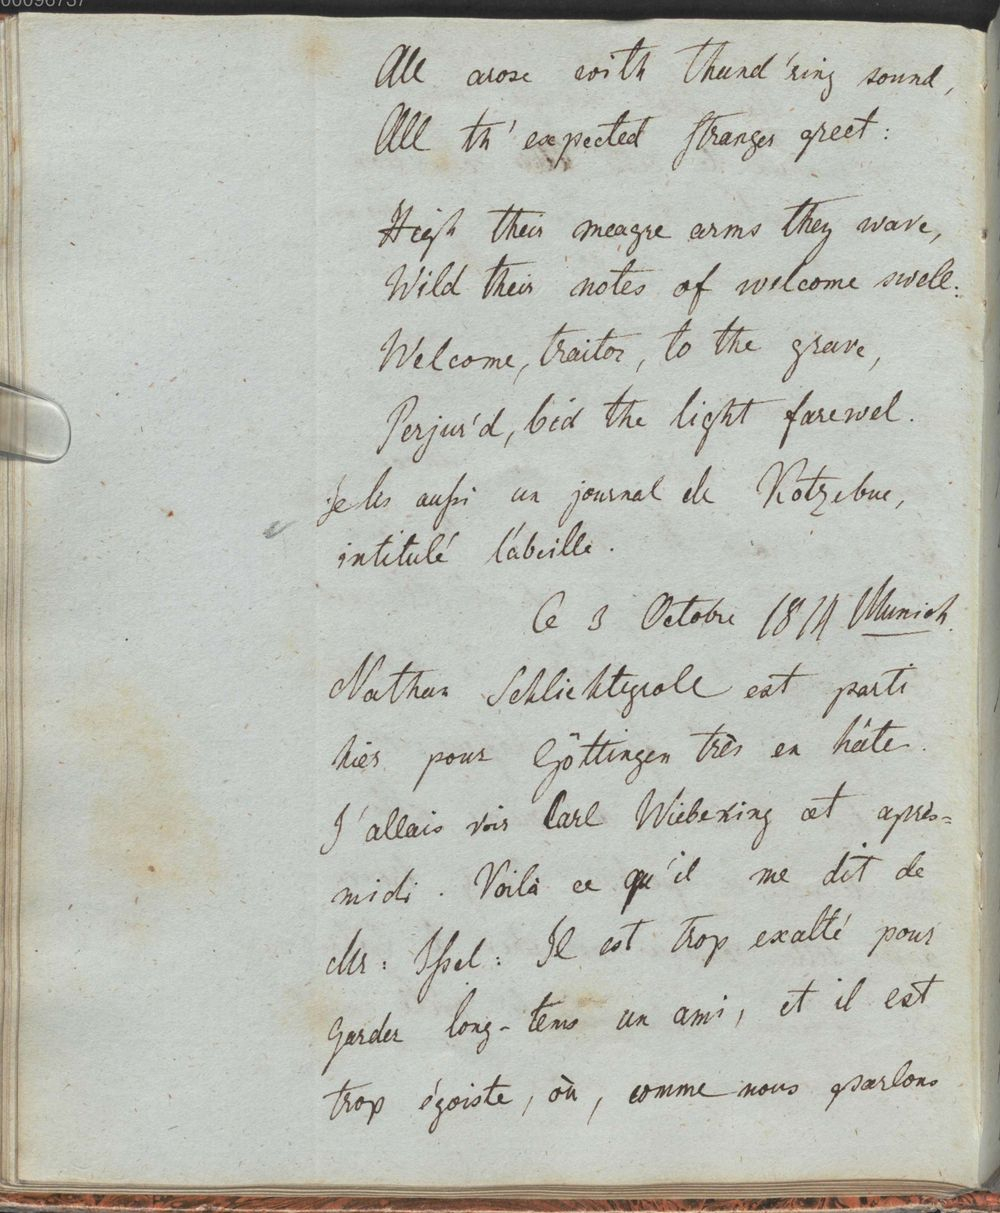 00096737
All arose with thund'ring sound,
All th' expected stranger greet:
High their meagre arms they wave,
Wild their notes of welcome swell:
Welcome, traitor, to the grave,
Perjur'd, bid the light farewel.
Je lis aussi un journal de Kotzebue,
intitulé l'abeille.
Ce 3 Octobre 1814 Munich.
Nathan Schlichtegroll est parti
hier pour Göttingen très en hâte.
J'allais voir Carl Wiebeking cet après=
midi. Voilà ce qu'il me dit de
Mr: Issel: Il est trop exalté pour
garder long-tems un ami, et il est
trop égoiste, où, comme nous parlons